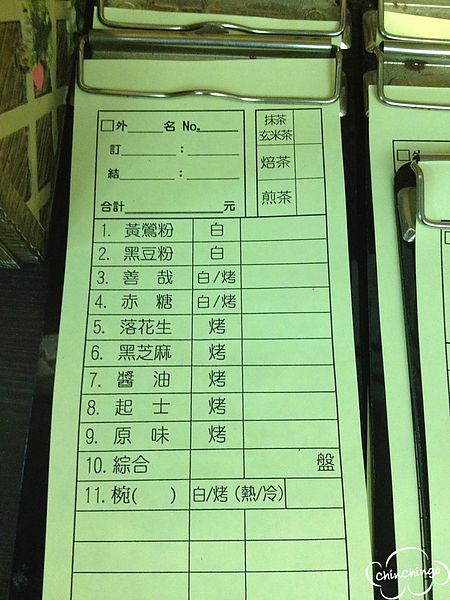 □外____名 No.____
抹茶
玄米茶
訂____:____
焙茶
結____:____
煎茶
合計____元
1. 黃鶯粉 白
2. 黑豆粉 白
3. 善哉 白/烤
4. 赤糖 白/烤
5. 落花生 烤
6. 黑芝麻 烤
7. 醬油 烤
8. 起士 烤
9. 原味 烤
10. 綜合 盤
11. 椀( ) 白/烤 (熱/冷)
□外
chinchingo